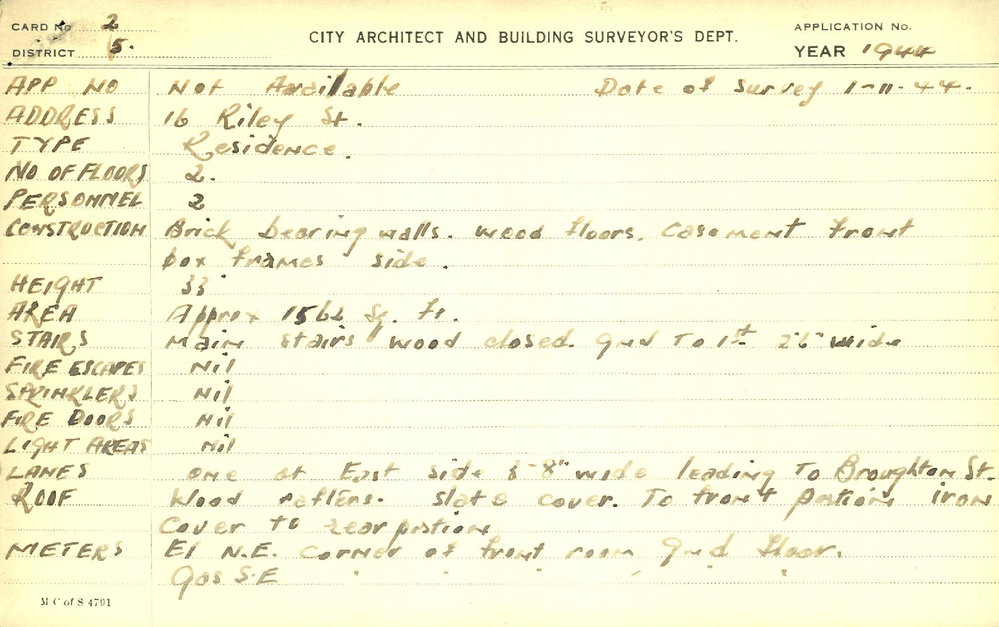 CARD No 2
DISTRICT 5.
CITY ARCHITECT AND BUILDING SURVEYOR'S DEPT.
APPLICATION No.
YEAR 1944
APP NO Not Available Date of Survey 1-11-44.
ADDRESS 16 Riley St.
TYPE Residence.
NO OF FLOORS 2.
PERSONNEL 2
CONSTRUCTION Brick bearing walls. wood floors. Casement front
box frames side.
HEIGHT 33'
AREA Approx 1562 Sq. Ft.
STAIRS Main stairs wood closed. Gnd To 1st 2'6" wide
FIRE ESCAPES Nil
SPRINKLERS Nil
FIRE DOORS Nil
LIGHT AREAS Nil
LANES One at East side wide leading To Broughton St.
ROOF Wood rafters. slate cover. To front portion iron
Cover to rear portion
METERS El N.E. corner of front room Gnd floor.
Gas S.E " " " " "
M C of S 4791